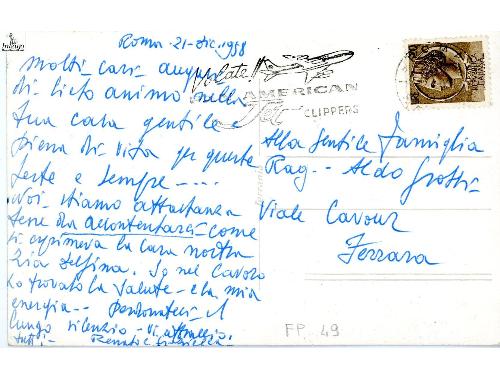 Roma - 21 - dic. 1958
molti cari auguri
di lieto animo nella
tua casa gentile e
piena di vita per queste
feste e sempre ----
Noi stiamo abbastanza
bene da accontentarci come
si esprimeva la cara nostra
Zia Delfina. Io nel lavoro
ho trovato la salute e la mia
energia -- perdonateci il
lungo silenzio - vi abbraccio
tutti -
Renato e
Volate!!
AMERICAN
CLIPPERS
Alla Gentile Famiglia
Rag -- Aldo
Viale Cavour
Ferrara
FP 49